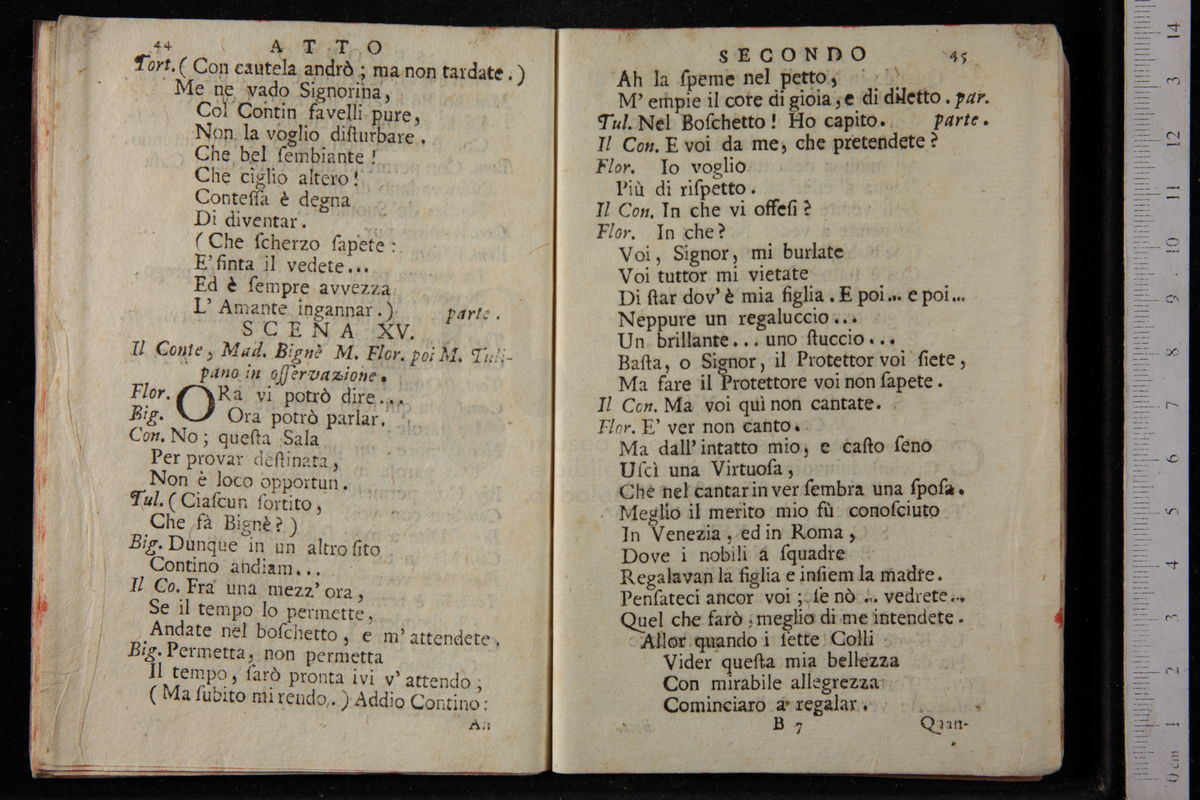 44 ATTO
Tort. ( Con cautela andrò ; ma non tardate . )
Me ne vado Signorina,
Col Contin favelli pure,
Non la voglio diſturbare .
Che bel ſembiante !
Che ciglio altero !
Conteſſa è degna
Di diventar .
( Che ſcherzo ſapete :
E' finta il vedete...
Ed è ſempre avvezza
L' Amante ingannar . ) parte .
SCENA XV.
Il Conte, Mad. Bignè M. Flor. poi M. Tuli-
pano in oſſervazione .
Flor. ORa vi potrò dire...
Big. Ora potrò parlar.
Con. No ; queſta Sala
Per provar deſtinata ,
Non è loco opportun .
Tul. ( Ciaſcun ſortito ,
Che fà Bignè ? )
Big. Dunque in un altro ſito
Contino andiam...
Il Co. Fra una mezz' ora ,
Se il tempo lo permette ,
Andate nel boſchetto , e m' attendete .
Big. Permetta, non permetta
Il tempo, ſarò pronta ivi v' attendo ;
( Ma ſubito mi rendo . ) Addio Contino :
An
SECONDO 45
Ah la ſpeme nel petto ,
M' empie il core di gioia , e di diletto . par.
Tul. Nel Boſchetto ! Ho capito . parte .
Il Con. E voi da me, che pretendete ?
Flor. Io voglio
Più di riſpetto .
Il Con. In che vi offeſi ?
Flor. In che ?
Voi , Signor, mi burlate
Voi tuttor mi vietate
Di ſtar dov' è mia figlia . E poi... e poi...
Neppure un regaluccio ...
Un brillante... uno ſtuccio ...
Baſta, o Signor, il Protettor voi ſiete ,
Ma fare il Protettore voi non ſapete .
Il Con. Ma voi quì non cantate .
Flor. E' ver non canto .
Ma dall' intatto mio, e caſto ſeno
Uſcì una Virtuoſa ,
Che nel cantar in ver ſembra una ſpoſa .
Meglio il merito mio fù conoſciuto
In Venezia , ed in Roma ,
Dove i nobili a ſquadre
Regalavan la figlia e inſiem la madre .
Penſateci ancor voi ; ſe nò ... vedrete...
Quel che farò ; meglio di me intendete .
Allor quando i ſette Colli
Vider queſta mia bellezza
Con mirabile allegrezza
Cominciaro a regalar .
B 7 Quan-
0 cm 1 2 3 4 5 6 7 8 9 10 11 12 13 14